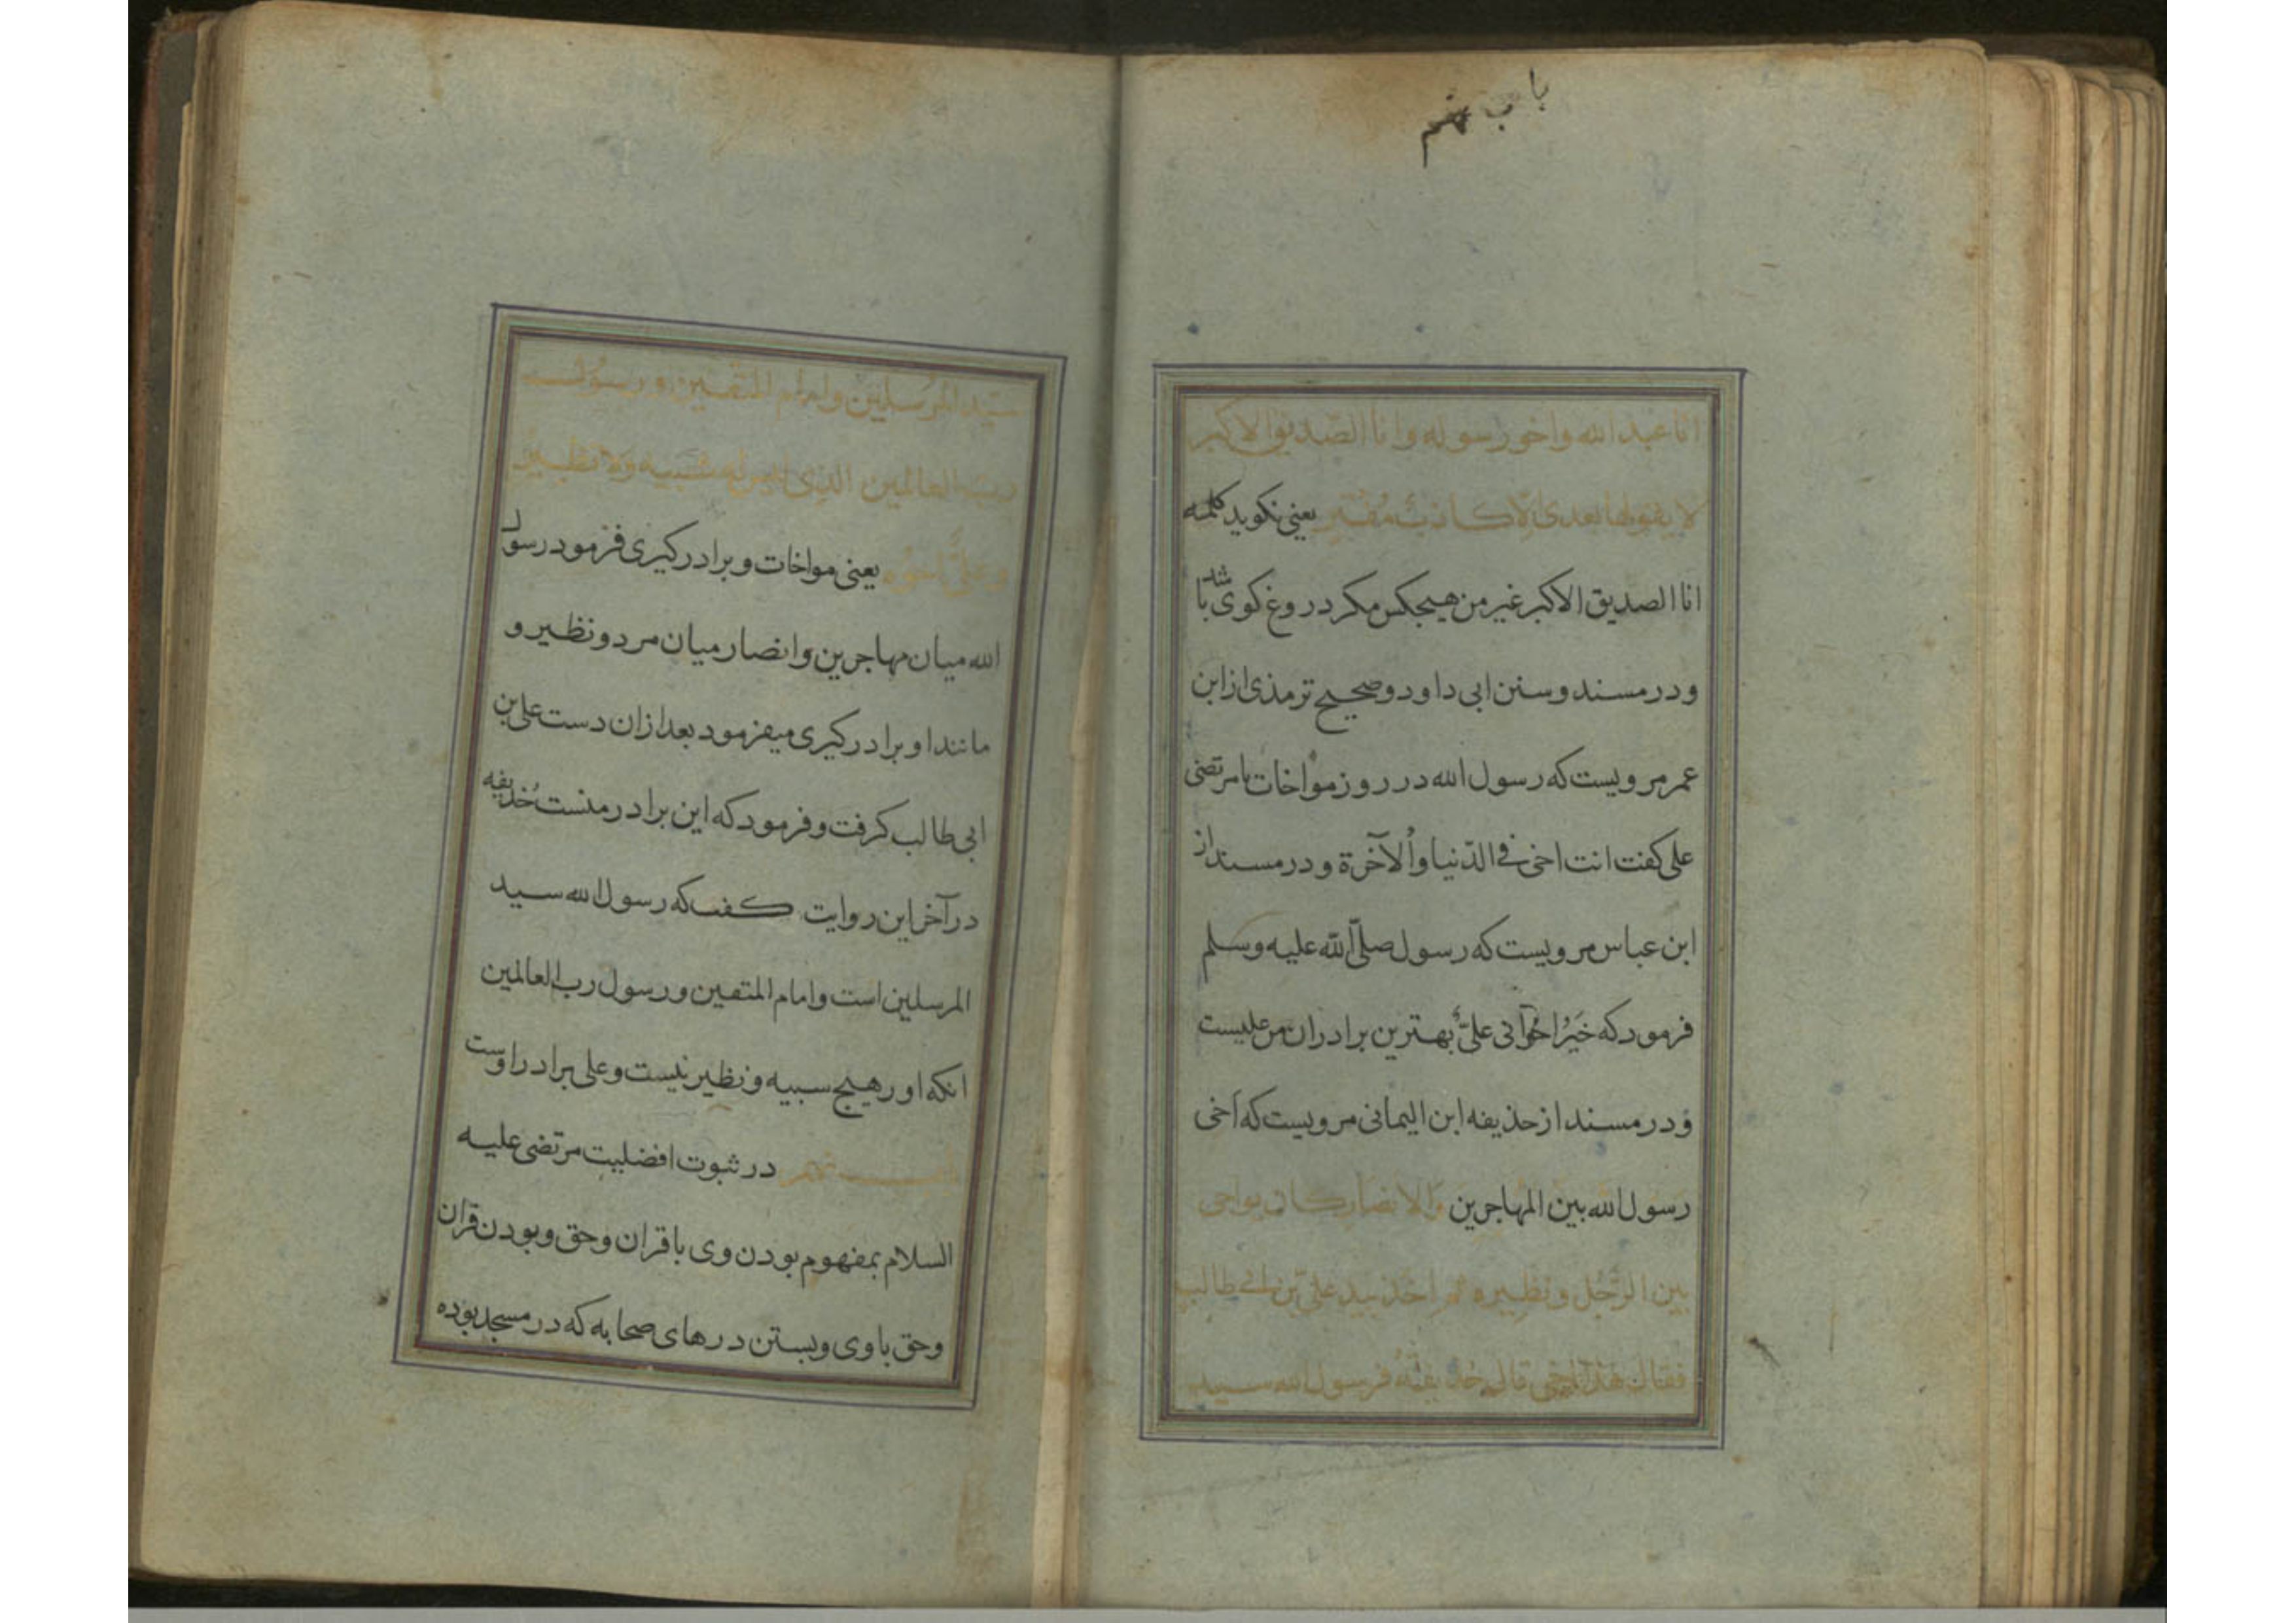 باب نهم
انا عبد الله واخو رسوله وانا الصّديق الاكبر
لا يقولها بعدى الّا كاذب مُفتَرٍ يعنى نكويد كلمه
انا الصديق الاكبر غير من هيجكس مكر دروغ كوى باشد
و در مسند و سنن ابى داود و صحيح ترمذى از ابن
عمر مرويست كه رسول الله در روز مواخات با مرتضى
على كفت انت اخى فى الدّنيا والآخرة و در مسند از
ابن عباس مرويست كه رسول صلّى اللّه عليه وسلم
فرمود كه خَيرُ اخُوانى علىٌّ بهترين برادران من عليست
و در مسند از حذيفه ابن اليمانى مرويست كه آخى
رسُول الله بين المُهاجرين وَالانصَار كان يواخى
بين الرَّجُل ونظيره ثم اخذ بيد علىّ بن ابى طالب
فقال هٰذا اخى قال حُذيفَةُ فرسول الله سيد
سيّد المرُسلين وامام المتّقين ورسوُل
ربّ العالمين الذى ليس له شَبيه وَلا نظير
وعلىٌّ اخوُه يعنى مواخات و برادركيرى فرمود رسول
الله ميان مهاجرين و انصار ميان مرد و نظير و
مانند او برادركيرى ميفرمود بعد از ان دست على بن
ابى طالب كرفت و فرمود كه اين برادر منست حُذيفه
در آخر اين روايت كفت كه رسول الله سيد
المرسلين است و امام المتقين و رسول رب العالمين
انكه او ر هيج سبيه و نظير نيست و على برادر اوست
باب نهم در ثبوت افضليت مرتضى عليه
السلام بمفهوم بودن وى با قران و حق و بودن قران
و حق با وى و بستن درهاى صحابه كه در مسجد بوده